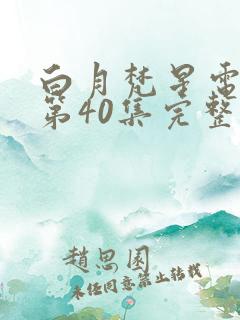 白月梵星电
第40集完整
趙思園
未经同意禁止转载